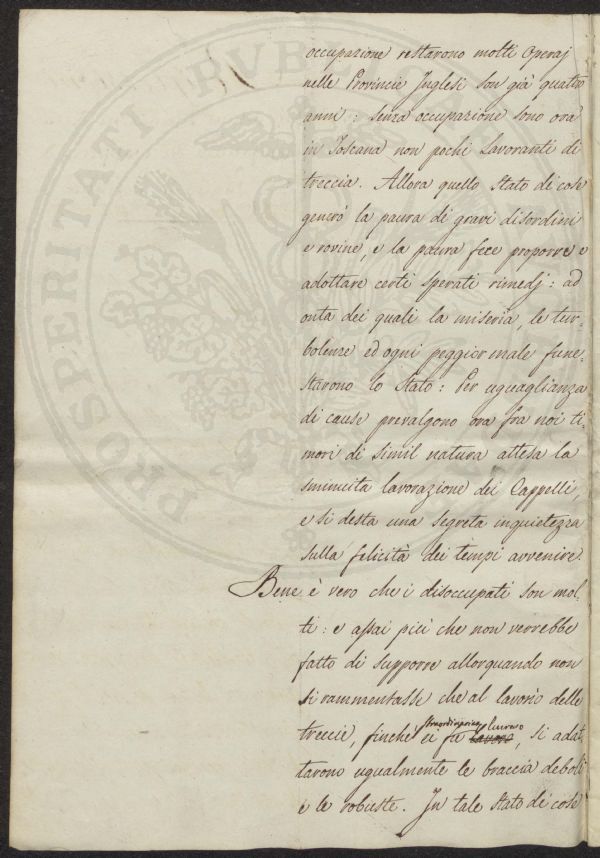 occupazione restarono molti Operaj
nelle Provincie Inglesi son già quattro
anni : senza occupazione sono ora
in Toscana non pochi Lavoranti di
treccia. Allora quello Stato di cose
generò la paura di gravi disordini
e rovine, e la paura fece proporre e
adottare certi sperati rimedj : ad
onta dei quali la miseria, le tur-
bolenze ed ogni peggior male fune-
starono lo Stato : Per uguaglianza
di cause prevalgono ora fra noi ti-
mori di simil natura attesa la
sminuita lavorazione dei Cappelli,
e si desta una segreta inquietezza
sulla felicità dei tempi avvenire.
Bene è vero che i disoccupati son mol-
ti : e assai più che non verrebbe
fatto di supporre allorquando non
si rammentasse che al lavorìo delle
straordinario lucro
treccie, finchè ci fu lavoro, si adat
tarono ugualmente le braccia deboli
e le robuste. In tale Stato di cose
PROSPERITATI PUB